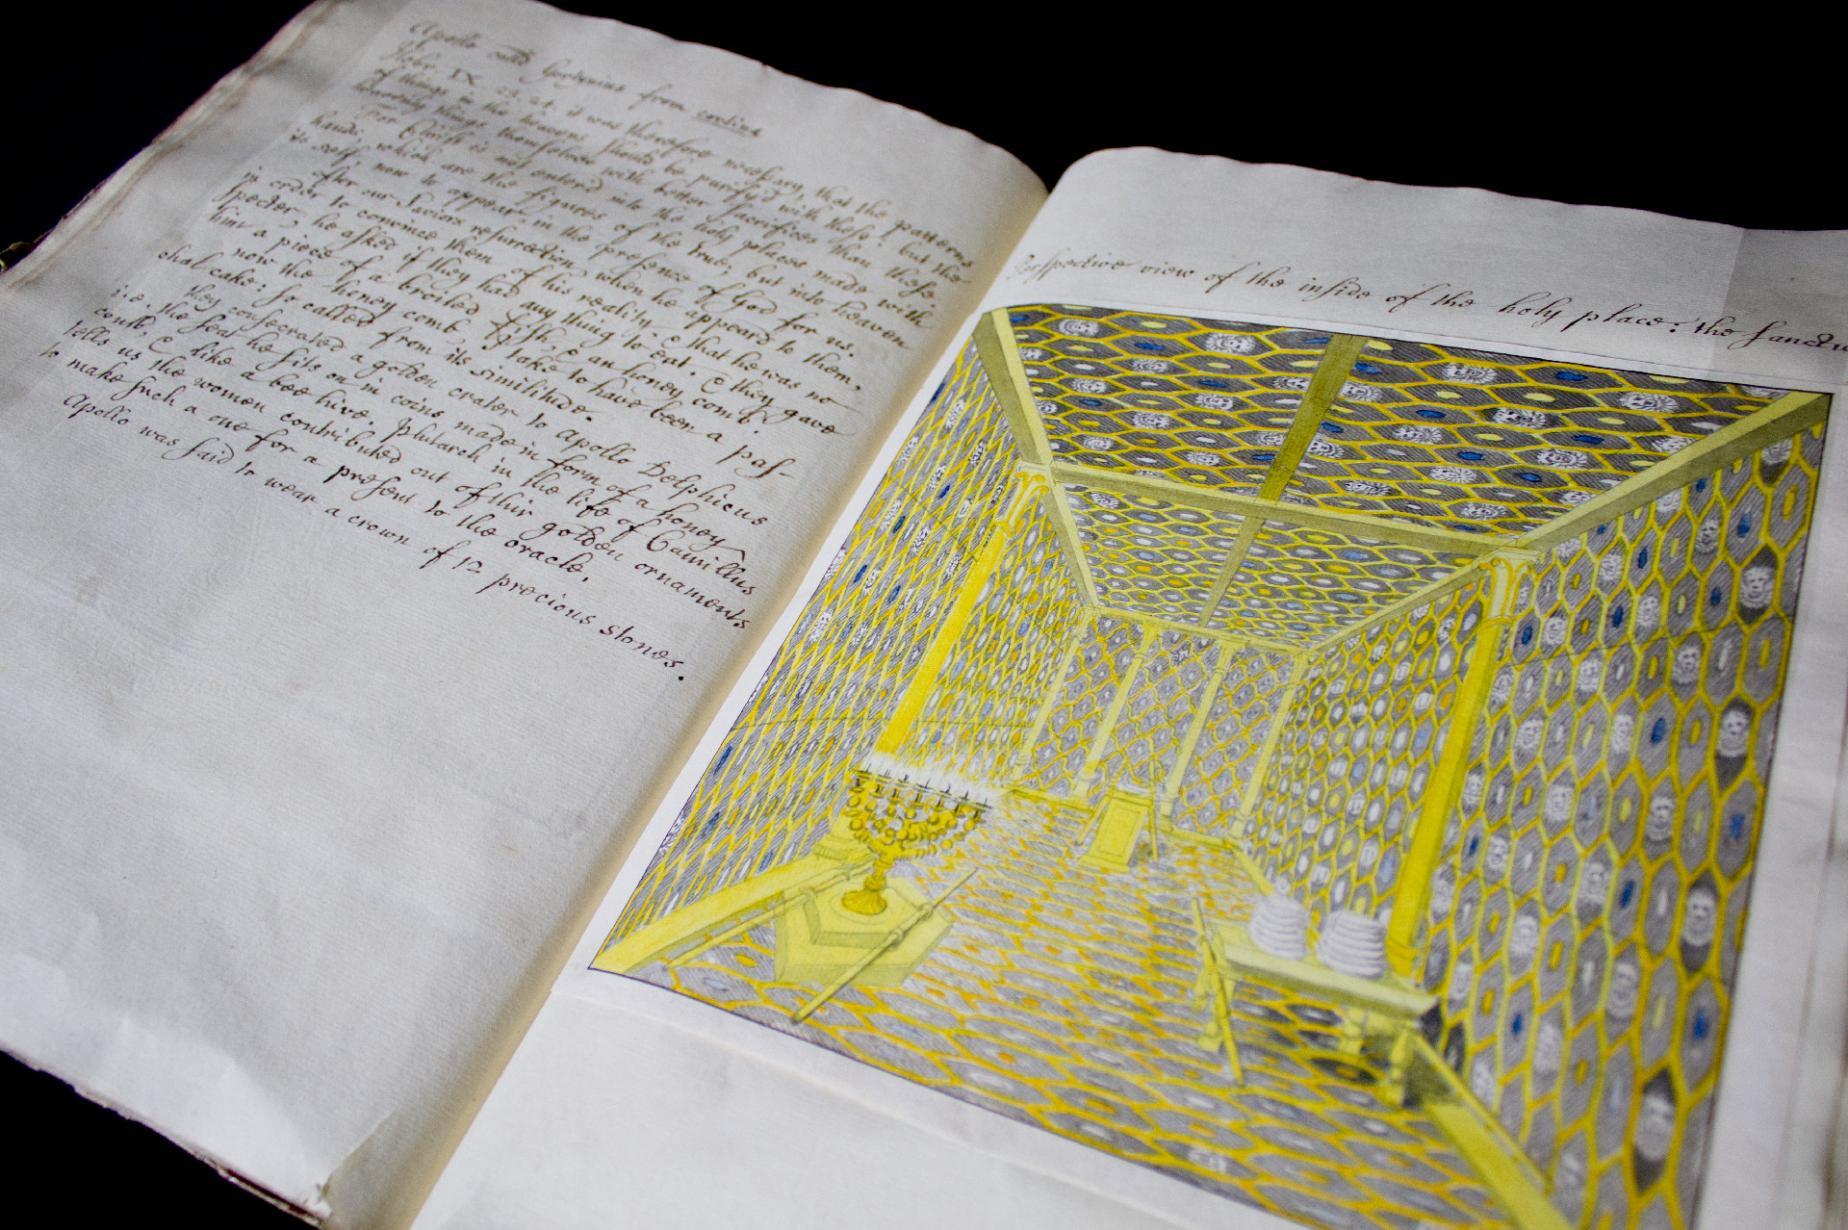 Apollo calld Gortynius from cortina
Hebr. IX. 23. 24. it was therefore necessary, that the patterns
of things in the heavens should be purify'd with these: but the
heavenly things themselves with better sacrifices than these.
For Christ is not entered into the holy places made with
hands, which are the figures of the true; but into heaven
its self, now to appear in the presence of God for us.
after our saviors resurrection when he appeard to them,
in order to convince them of his reality, & that he was no
specter, he asked if they had any thing to eat. & they gave
him a piece of a broiled fish, & an honey comb.
now the honey comb I take to have been a pas-
chal cake: so called from its similitude.
they consecrated a golden crater to Apollo Delphicus
i.e. the seat he sits on in coins made in form of a honey
comb, & like a bee hive. Plutarch in the life of Camillus
tells us the women contributed out of their golden ornaments
to make such a one for a present to the oracle.
Apollo was said to wear a crown of 12 precious stones.
Perspective view of the inside of the holy place: the sanctu